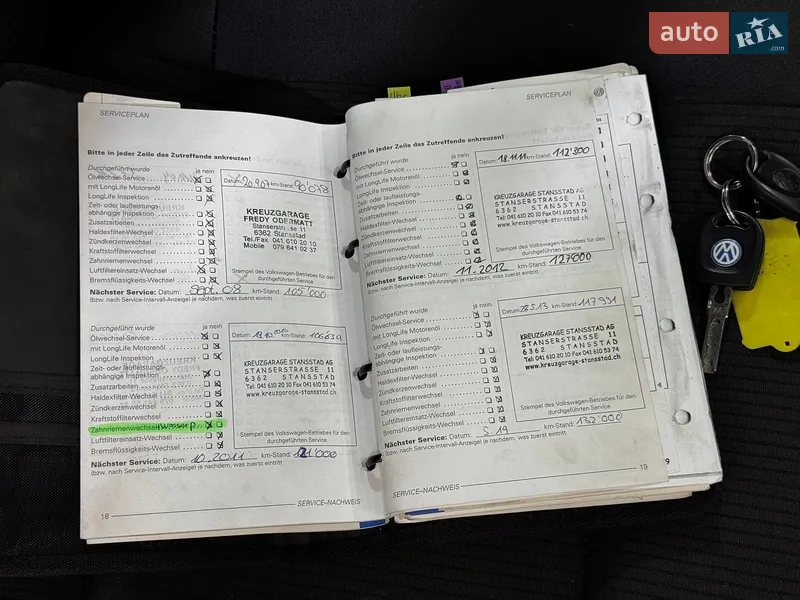 auto RIA .com
SERVICEPLAN
Bitte in jeder Zeile das Zutreffende ankreuzen!
Durchgeführt wurde ja nein
Ölwechsel-Service
mit LongLife Motorenöl
LongLife Inspektion
Zeit- oder laufleistungs-
abhängige Inspektion
Zusatzarbeiten
Haldexfilter-Wechsel
Zündkerzenwechsel
Kraftstoffilterwechsel
Zahnriemenwechsel
Luftfiltereinsatz-Wechsel
Bremsflüssigkeits-Wechsel
Datum: km-Stand:
KREUZGARAGE
FREDY ODERMATT
Stanserstrasse 11
6362 Stansstad
Tel./Fax. 041 610 20 10
Mobile 079 641 02 37
Stempel des Volkswagen-Betriebes für den
durchgeführten Service
Nächster Service: Datum: Sept. 08 km-Stand: 105'000
(bzw. nach Service-Intervall-Anzeige) je nachdem, was zuerst eintritt
Durchgeführt wurde ja nein
Ölwechsel-Service
mit LongLife Motorenöl
LongLife Inspektion
Zeit- oder laufleistungs-
abhängige Inspektion
Zusatzarbeiten
Haldexfilter-Wechsel
Zündkerzenwechsel
Kraftstoffilterwechsel
Zahnriemenwechsel
Luftfiltereinsatz-Wechsel
Bremsflüssigkeits-Wechsel
Datum: km-Stand:
KREUZGARAGE STANSSTAD AG
STANSERSTRASSE 11
6362 STANSSTAD
Tel: 041 610 20 10 Fax 041 610 53 74
www.kreuzgarage-stansstad.ch
Stempel des Volkswagen-Betriebes für den
durchgeführten Service
Nächster Service: Datum: 10.2011 km-Stand: 121'000
(bzw. nach Service-Intervall-Anzeige) je nachdem, was zuerst eintritt
18
SERVICE-NACHWEIS
SERVICEPLAN
Bitte in jeder Zeile das Zutreffende ankreuzen!
Durchgeführt wurde ja nein
Ölwechsel-Service
mit LongLife Motorenöl
LongLife Inspektion
Zeit- oder laufleistungs-
abhängige Inspektion
Zusatzarbeiten
Haldexfilter-Wechsel
Zündkerzenwechsel
Kraftstoffilterwechsel
Zahnriemenwechsel
Luftfiltereinsatz-Wechsel
Bremsflüssigkeits-Wechsel
Datum: 18.11.11 km-Stand: 112'300
KREUZGARAGE STANSSTAD AG
STANSERSTRASSE 11
6362 STANSSTAD
Tel: 041 610 20 10 Fax 041 610 53 74
www.kreuzgarage-stansstad.ch
Stempel des Volkswagen-Betriebes für den
durchgeführten Service
Nächster Service: Datum: 11.2012 km-Stand: 127'000
(bzw. nach Service-Intervall-Anzeige) je nachdem, was zuerst eintritt
Durchgeführt wurde ja nein
Ölwechsel-Service
mit LongLife Motorenöl
LongLife Inspektion
Zeit- oder laufleistungs-
abhängige Inspektion
Zusatzarbeiten
Haldexfilter-Wechsel
Zündkerzenwechsel
Kraftstoffilterwechsel
Zahnriemenwechsel
Luftfiltereinsatz-Wechsel
Bremsflüssigkeits-Wechsel
Datum: 28.5.13 km-Stand: 117'931
KREUZGARAGE STANSSTAD AG
STANSERSTRASSE 11
6362 STANSSTAD
Tel: 041 610 20 10 Fax 041 610 53 74
www.kreuzgarage-stansstad.ch
Stempel des Volkswagen-Betriebes für den
durchgeführten Service
Nächster Service: Datum: km-Stand: 132'000
(bzw. nach Service-Intervall-Anzeige) je nachdem, was zuerst eintritt
SERVICE-NACHWEIS
19